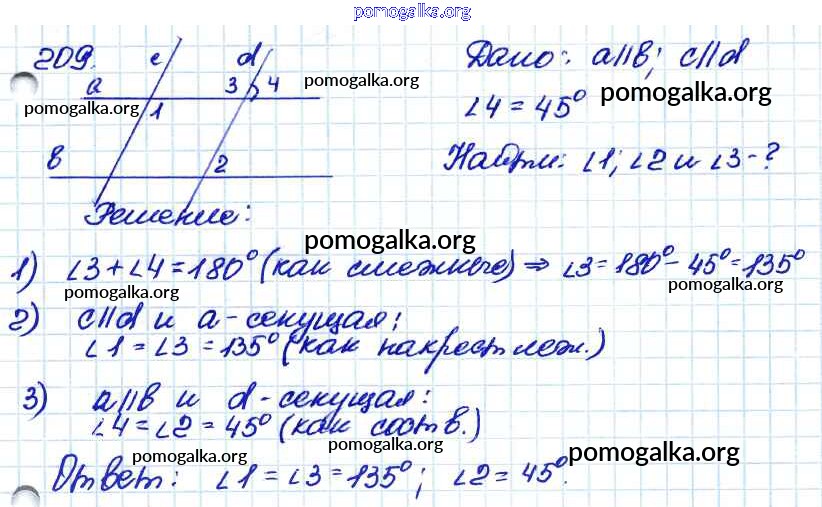 pomogalka.org
209.
c d
a 3 4
1
в 2
Дано: a||в; c||d
pomogalka.org
pomogalka.org
pomogalka.org
∠4 = 45°
Найти: ∠1; ∠2 и ∠3 - ?
Решение:
pomogalka.org
1) ∠3 + ∠4 = 180° (как смежные) ⇒ ∠3 = 180° - 45° = 135°
pomogalka.org
pomogalka.org
2) c||d и a - секущая:
∠1 = ∠3 = 135° (как накрест леж.)
pomogalka.org
3) a||в и d - секущая:
∠4 = ∠2 = 45° (как соотв.)
pomogalka.org
pomogalka.org
pomogalka.org
Ответ: ∠1 = ∠3 = 135°; ∠2 = 45°.